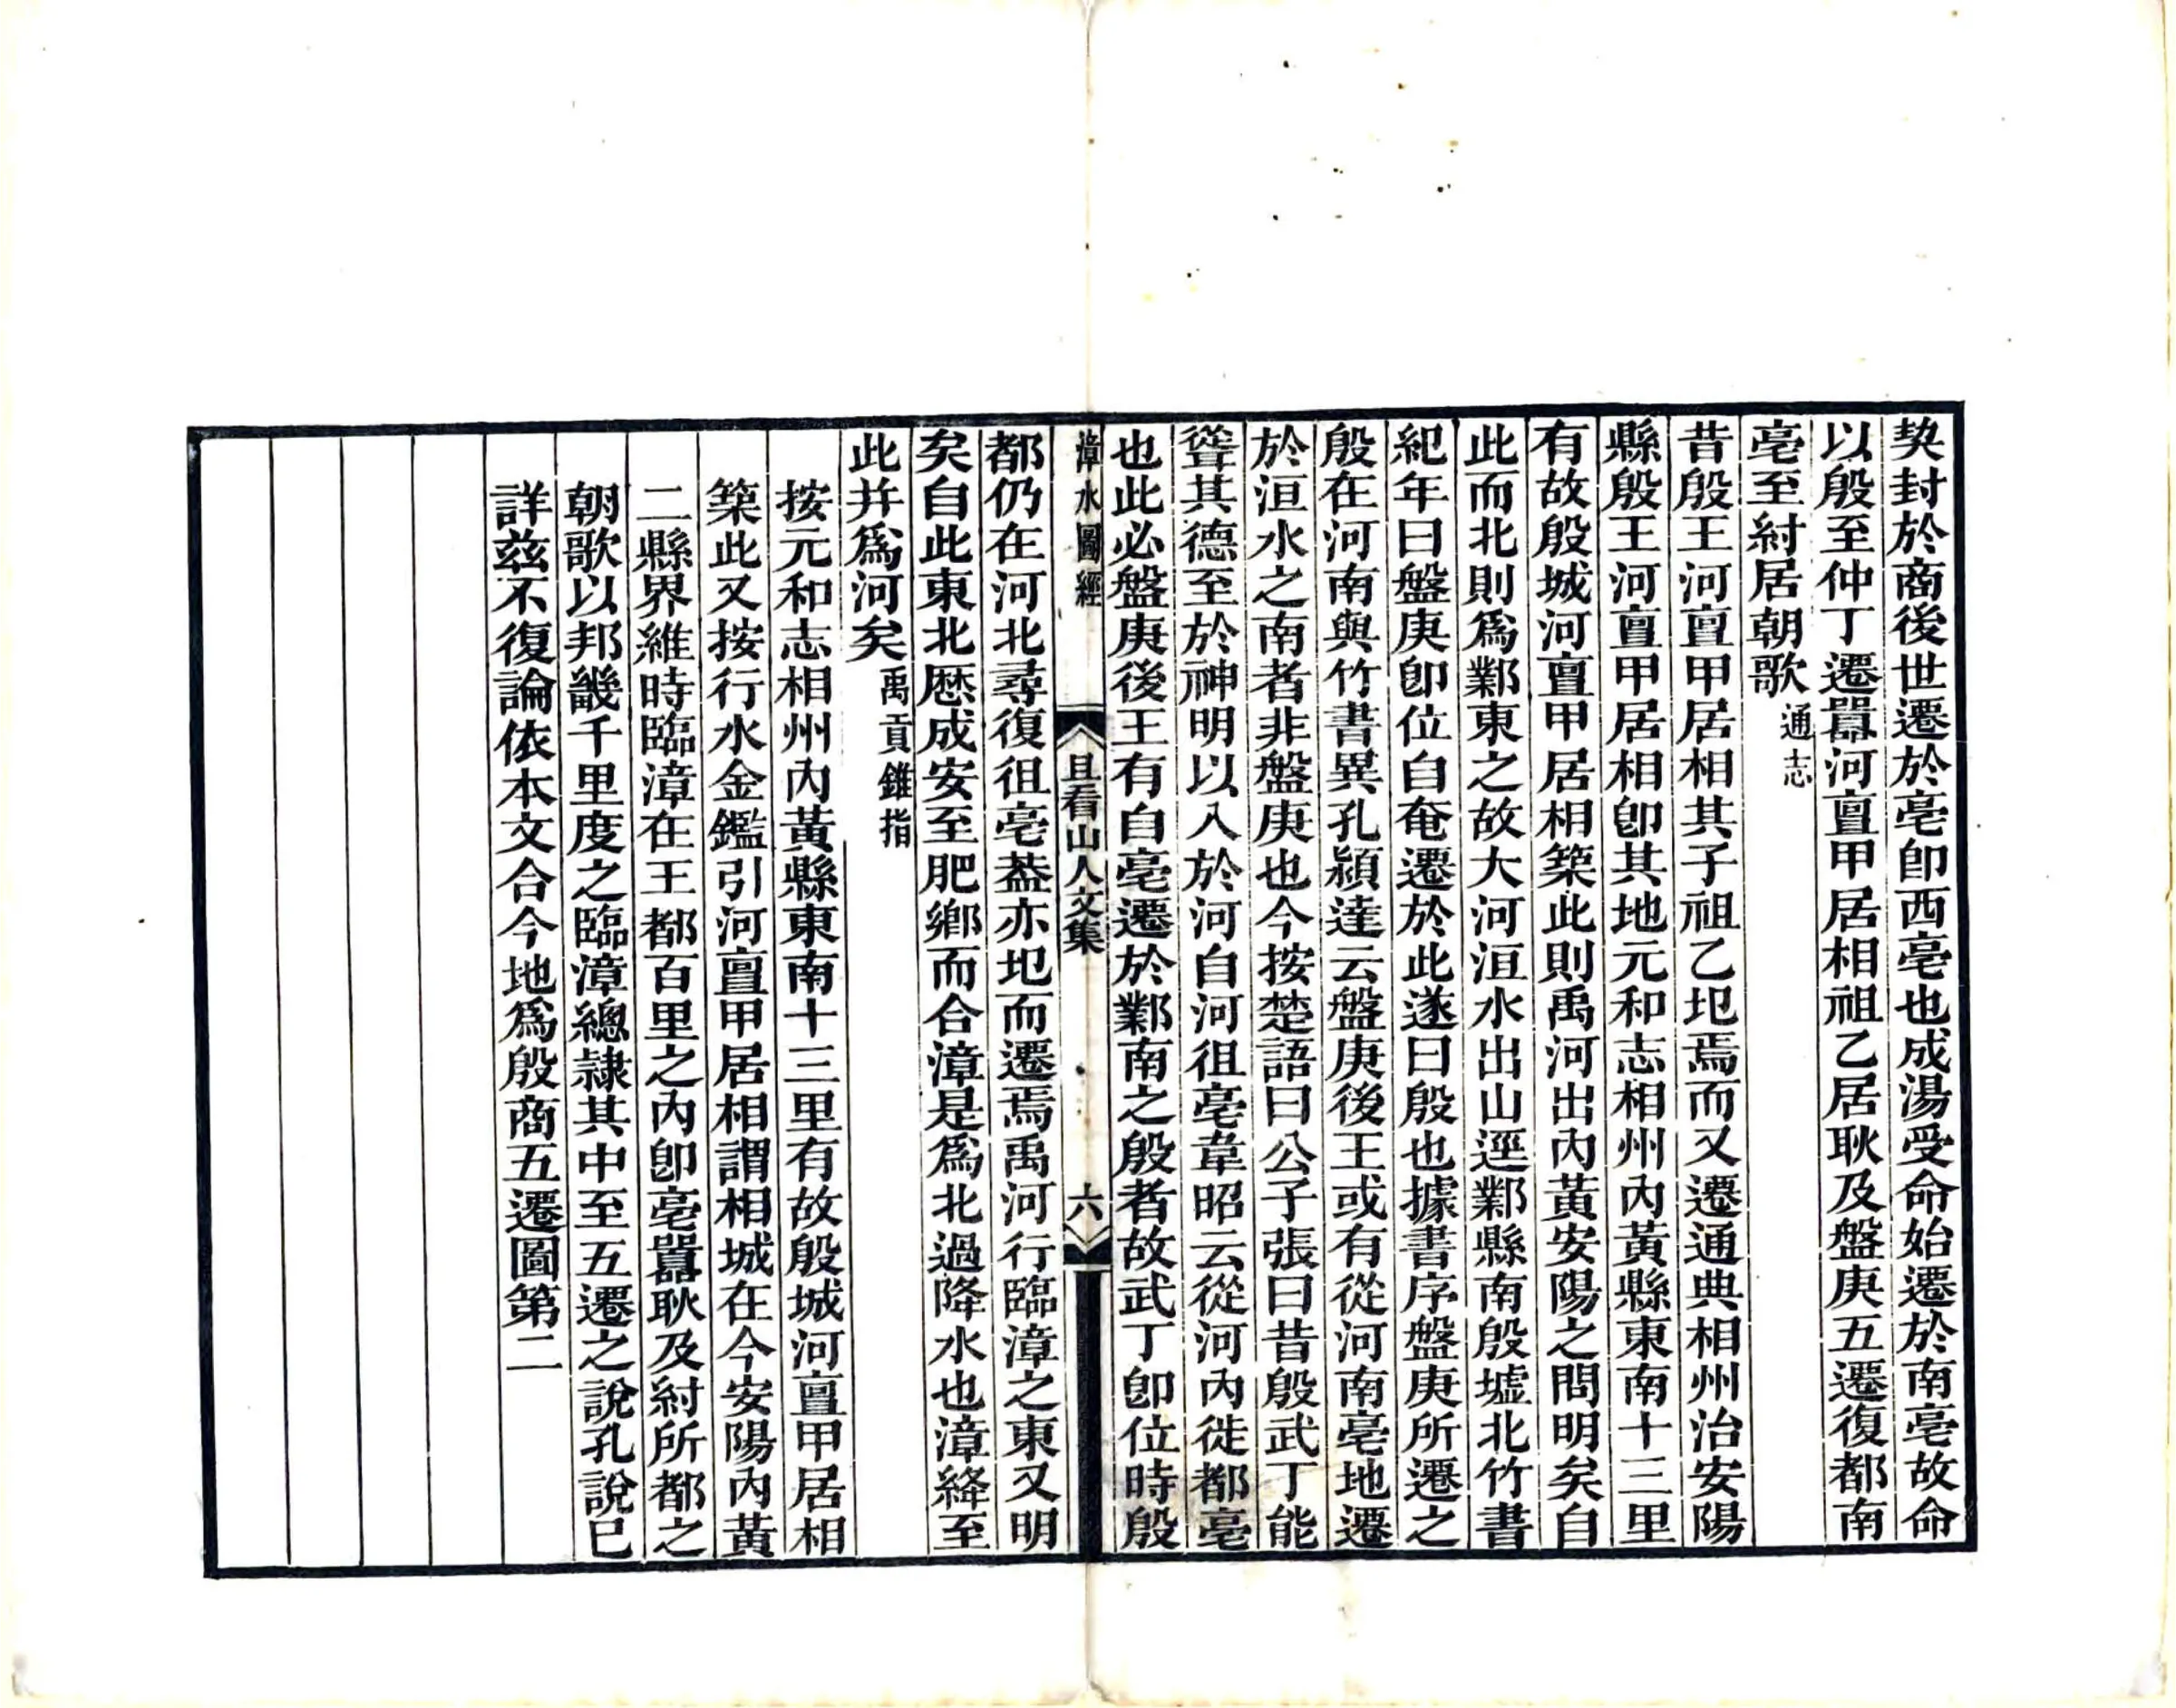 契封於商後世遷於亳卽西亳也成湯受命始遷於南亳故命
以殷至仲丁遷嚻河亶甲居相祖乙居耿及盤庚五遷復都南
亳至紂居朝歌通志
昔殷王河亶甲居相其子祖乙圯焉而又遷通典相州治安陽
縣殷王河亶甲居相卽其地元和志相州內黃縣東南十三里
有故殷城河亶甲居相築此則禹河出內黃安陽之問明矣自
此而北則爲鄴東之故大河洹水出山逕鄴縣南殷墟北竹書
紀年曰盤庚卽位自奄遷於此遂曰殷也據書序盤庚所遷之
殷在河南與竹書異孔潁達云盤庚後王或有從河南亳地遷
於洹水之南者非盤庚也今按楚語曰公子張曰昔殷武丁能
聳其德至於神明以入於河自河徂亳韋昭云從河內徙都亳
也此必盤庚後王有自亳遷於鄴南之殷者故武丁卽位時殷
漳水圖經 且看山人文集 六
都仍在河北尋復徂亳葢亦圯而遷焉禹河行臨漳之東又明
矣自此東北厯成安至肥鄉而合漳是爲北過降水也漳絳至
此并爲河矣禹貢錐指
按元和志相州內黃縣東南十三里有故殷城河亶甲居相
築此又按行水金鑑引河亶甲居相謂相城在今安陽內黃
二縣界維時臨漳在王都百里之內卽亳嚻耿及紂所都之
朝歌以邦畿千里度之臨漳總隷其中至五遷之說孔說巳
詳茲不復論依本文合今地爲殷商五遷圖第二